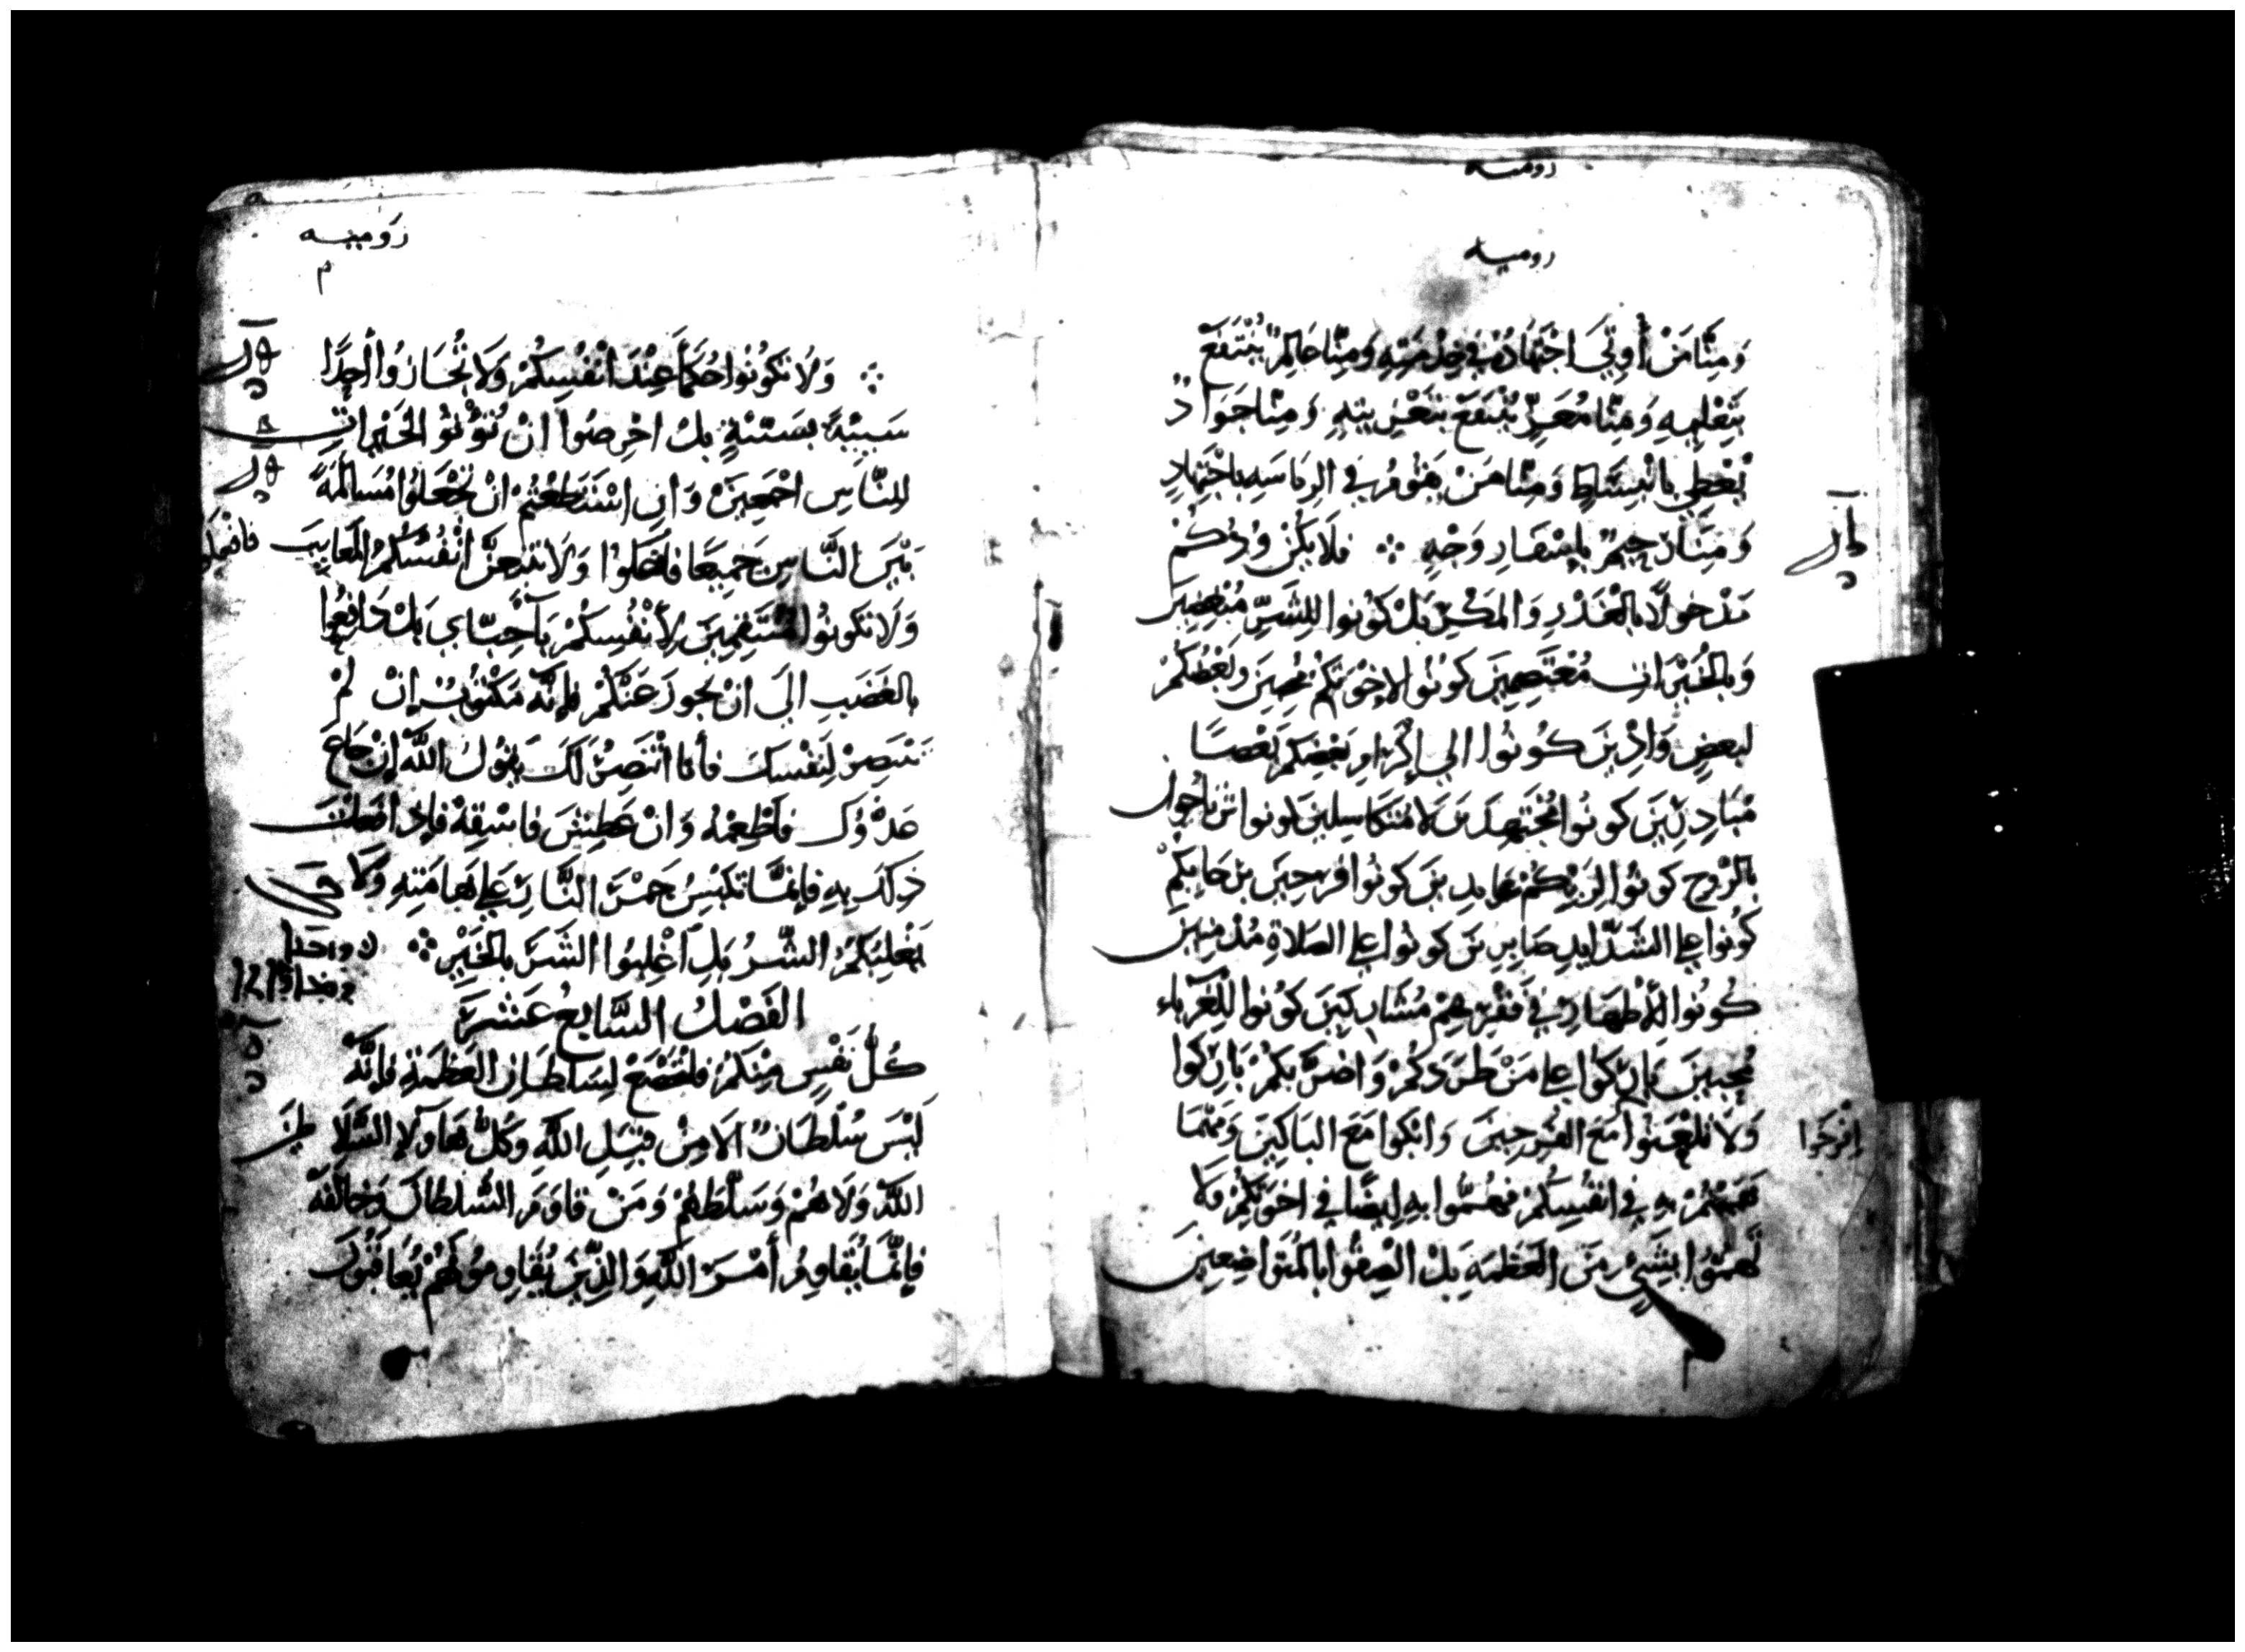 روميه
روميه
وَمِنَّا مَنْ أُوتِيَ اجْتِهَادٌ فِي خِدْمَتِهِ وَمِنَّا عَالِمٌ يُنْتَفَعُ
بِتَعْلِيمِهِ وَمِنَّا مُعَزٍّ يُنْتَفَعُ بِتَعْزِيَتِهِ وَمِنَّا جَوَادٌ
يُعْطِي بِانْبِسَاطٍ وَمِنَّا مَنْ يَقُومُ فِي الرِيَاسَهِ بِاجْتِهَادٍ
وَمِنَّا رَحِيمٌ بِإِسْفَارِ وَجْهٍ ⁘ فَلَا يَكُنْ وُدُّكُمْ
مَدْخُولًا بِالْغَدْرِ وَالمَكْرِ بَلْ كُونُوا لِلشَرِّ مُبْغِضِينَ
وَبِالْخَيْرَاتِ مُعْتَصِمِينَ كُونُوا لِإِخْوَتِكُمْ مُحِبِينَ وَبَعْضُكُمْ
لبَعضٍ وَادِّينَ كُونُوا إلي إِكْرَامِ بَعْضِكُمْ بَعْضًا
مُبَادِرِينَ كُونُوا مُجْتَهِدِينَ لَا مُتَكَاسِلِينَ كونوا
بِالرُوحِ كُونُوا لِرَبِّكُمْ عَابِدِينَ كُونُوا فَرِحِينَ بِرَجَايِكُمْ
كُونُوا عَلِي الشَدَايِدِ صَابِرِينَ كونُوا عَلِي الصَلَاةِ مُدْمِنِين
كُونُوا لِلأَطْهَارِ فِي فَقْرِهِمْ مُشَارِكِينَ كُونُوا لِلْغُرَبَاء
مُحِبِينَ بَارِكُوا عَلِي مَنْ طَرَدَكُمْ وَاضَرَّ بِكُمْ بَارِكُوا
وَلَا تَلْعَنُوا مَعَ الفَرِحِينَ وَابْكُوا مَعَ البَاكِينَ وَمَهْمَا
افْرَحُوا
هَمَمْتُمْ بِهِ فِي انْفُسِكُمْ فَهُمُّوا بِهِ ايضًا فِي اخْوَتِكُمْ لَا
تَهْتَمُّوا بِشَيْءٍ مِنَ العَظَمَهِ بَلْ الْصِقُوا بِالمُتَوَاضِعِينَ
رُوميه
⁘ وَلَا تَكُونُوا حُكَمَاءَ عِنْدَ انْفُسِكُمْ وَلَا تُجَازُوا أَحَدًا
سَيِّئَةً بِسَيِّئَةٍ بَلْ احْرِصُوا انْ تُؤْتُوْ الْخَيْرَاتِ
لِلنَّاسِ اجْمَعِينَ وَانِ اسْتَطَعْتُمْ انْ تَجْعَلُوا مُسَالَمَةً
بَيْنَ النَّاسِ جَمِيعًا فَافْعَلُوا وَلَا تَتْبَعَنَّ انْفُسُكُمْ المَعَايِبَ
وَلَا تَكُونُوا مُنْتَقِمِينَ لِأَنْفُسِكُمْ يَا أَحِبَّاي بَلْ دَافِعُوا
بِالغَضَبِ إلَي انْ يَجُوزَ عَنْكُمْ فَإِنَّهُ مَكْتُوبٌ إِنْ لَمْ
تَنْتَصِرْ لِنَفْسِكَ فَأَنَا أَنْتَصِرُ لَكَ يَقُولُ اللَّهُ إِنْ جَاعَ
عَدُوُّكَ فَاطْعِمْهُ وَانْ عَطِشَ فَاسْقِهْ فَإِذَا فَعَلْتَ
ذَلِكَ بِهِ فَإِنَّمَا تَكْبِسُ جَمْرَ النَّارِ عَلِي هَامَتِهِ وَلَا
يَغْلِبَنَّكُمُ الشَّرُ بَلِ اغْلِبُوا الشَرَ بِالخَيْرِ ⁘
الفَصْلُ السَّابِعُ عَشَرَ
كُلُّ نَفْسٍ مِنْكُمْ فَلْتَخْضَعْ لِسُلْطَانِ العَظَمَةِ فَإِنَّهُ
لَيْسَ سُلْطَانٌ الَا مِنْ قِبَلِ اللَّهِ وَكُلُّ هَاوُلَاءِ
اللَّهُ وَلَاهُمْ وَسَلَّطَهُمْ وَمَنْ قَاوَمَ السُلطَانَ وَخَالَفَهُ
فَإِنَّمَا يُقَاوِمُ أَمْرَ اللَّهِ وَالَّذِينَ يُقَاوِمُونَهُمْ يُعَاقَبُونَ